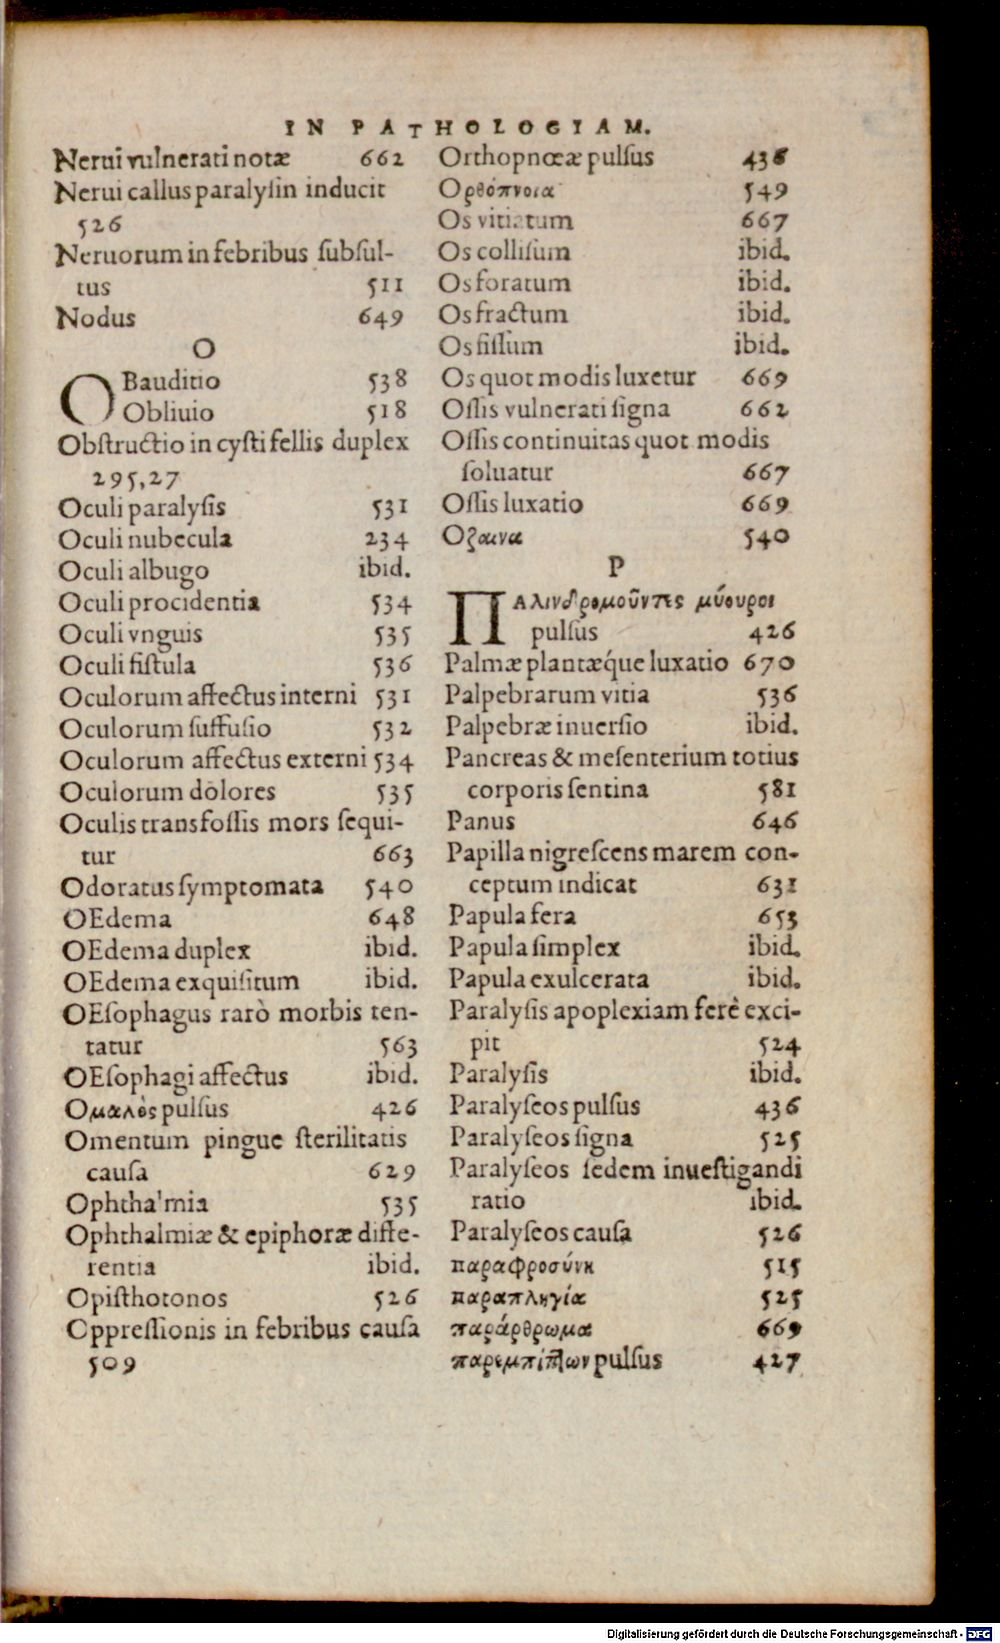 IN PATHOLOGIAM.
Nerui vulnerati notæ 662
Nerui callus paralyſin inducit
526
Neruorum in febribus ſubſul-
tus 511
Nodus 649
O
OBauditio 538
Obliuio 518
Obſtructio in cyſti fellis duplex
295,27
Oculi paralyſis 531
Oculi nubecula 234
Oculi albugo ibid.
Oculi procidentia 534
Oculi vnguis 535
Oculi fiſtula 536
Oculorum affectus interni 531
Oculorum ſuffuſio 532
Oculorum affectus externi 534
Oculorum dolores 535
Oculis transfoſſis mors ſequi-
tur 663
Odoratus ſymptomata 540
OEdema 648
OEdema duplex ibid.
OEdema exquiſitum ibid.
OEſophagus rarò morbis ten-
tatur 563
OEſophagi affectus ibid.
Ομαλὸς pulſus 426
Omentum pingue ſterilitatis
cauſa 629
Ophthalmia 535
Ophthalmiæ & epiphoræ diffe-
rentia ibid.
Opiſthotonos 526
Oppreſſionis in febribus cauſa
509
Orthopnœæ pulſus 436
Ορθόπνοια 549
Os vitiatum 667
Os colliſum ibid.
Os foratum ibid.
Os fractum ibid.
Os fiſſum ibid.
Os quot modis luxetur 669
Oſſis vulnerati ſigna 662
Oſſis continuitas quot modis
ſoluatur 667
Oſſis luxatio 669
Οζαινα 540
P
ΠΑλινδρομοῦντες μύουροι
pulſus 426
Palmæ plantæq́ue luxatio 670
Palpebrarum vitia 536
Palpebræ inuerſio ibid.
Pancreas & meſenterium totius
corporis ſentina 581
Panus 646
Papilla nigreſcens marem con-
ceptum indicat 631
Papula fera 653
Papula ſimplex ibid.
Papula exulcerata ibid.
Paralyſis apoplexiam ferè exci-
pit 524
Paralyſis ibid.
Paralyſeos pulſus 436
Paralyſeos ſigna 525
Paralyſeos ſedem inueſtigandi
ratio ibid.
Paralyſeos cauſa 526
παραφροσύνη 515
παραπληγία 525
παράρθρωμα 669
παρεμπίπτων pulſus 427
Digitalisierung gefördert durch die Deutsche Forschungsgemeinschaft - DFG